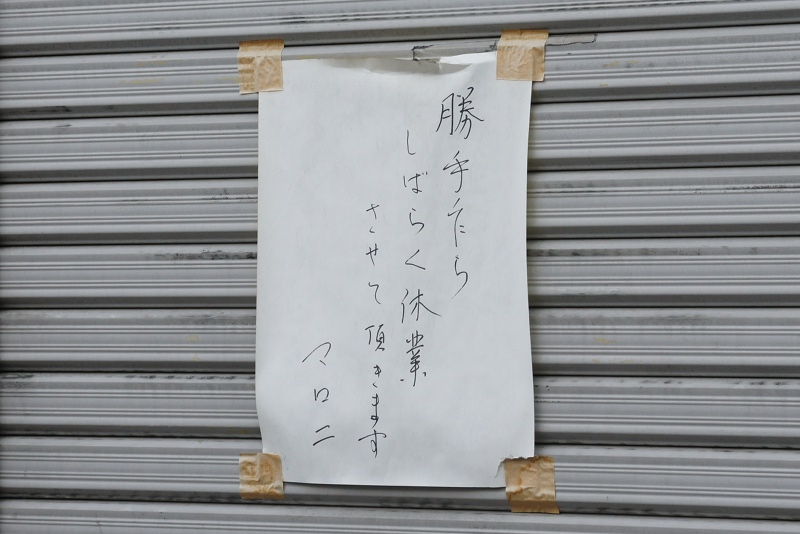 勝手乍ら
しばらく休業
させて頂きます
マロニ